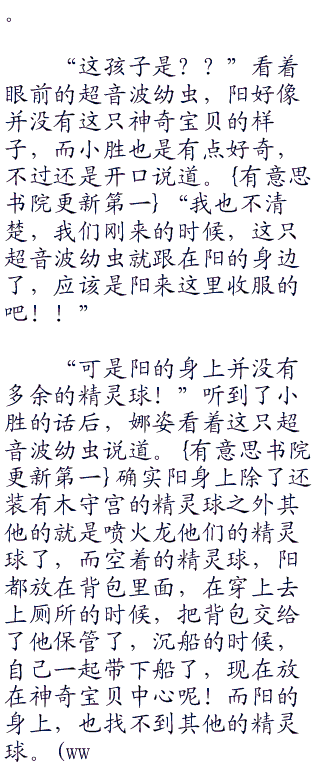 。
“这孩子是？？”看着
眼前的超音波幼虫，阳好像
并没有这只神奇宝贝的样
子，而小胜也是有点好奇，
不过还是开口说道。{有意思
书院更新第一}“我也不清
楚，我们刚来的时候，这只
超音波幼虫就跟在阳的身边
了，应该是阳来这里收服的
吧！！”
“可是阳的身上并没有
多余的精灵球！”听到了小
胜的话后，娜姿看着这只超
音波幼虫说道。{有意思书院
更新第一}确实阳身上除了还
装有木守宫的精灵球之外其
他的就是喷火龙他们的精灵
球了，而空着的精灵球，阳
都放在背包里面，在穿上去
上厕所的时候，把背包交给
了他保管了，沉船的时候，
自己一起带下船了，现在放
在神奇宝贝中心呢！而阳的
身上，也找不到其他的精灵
球。(ww